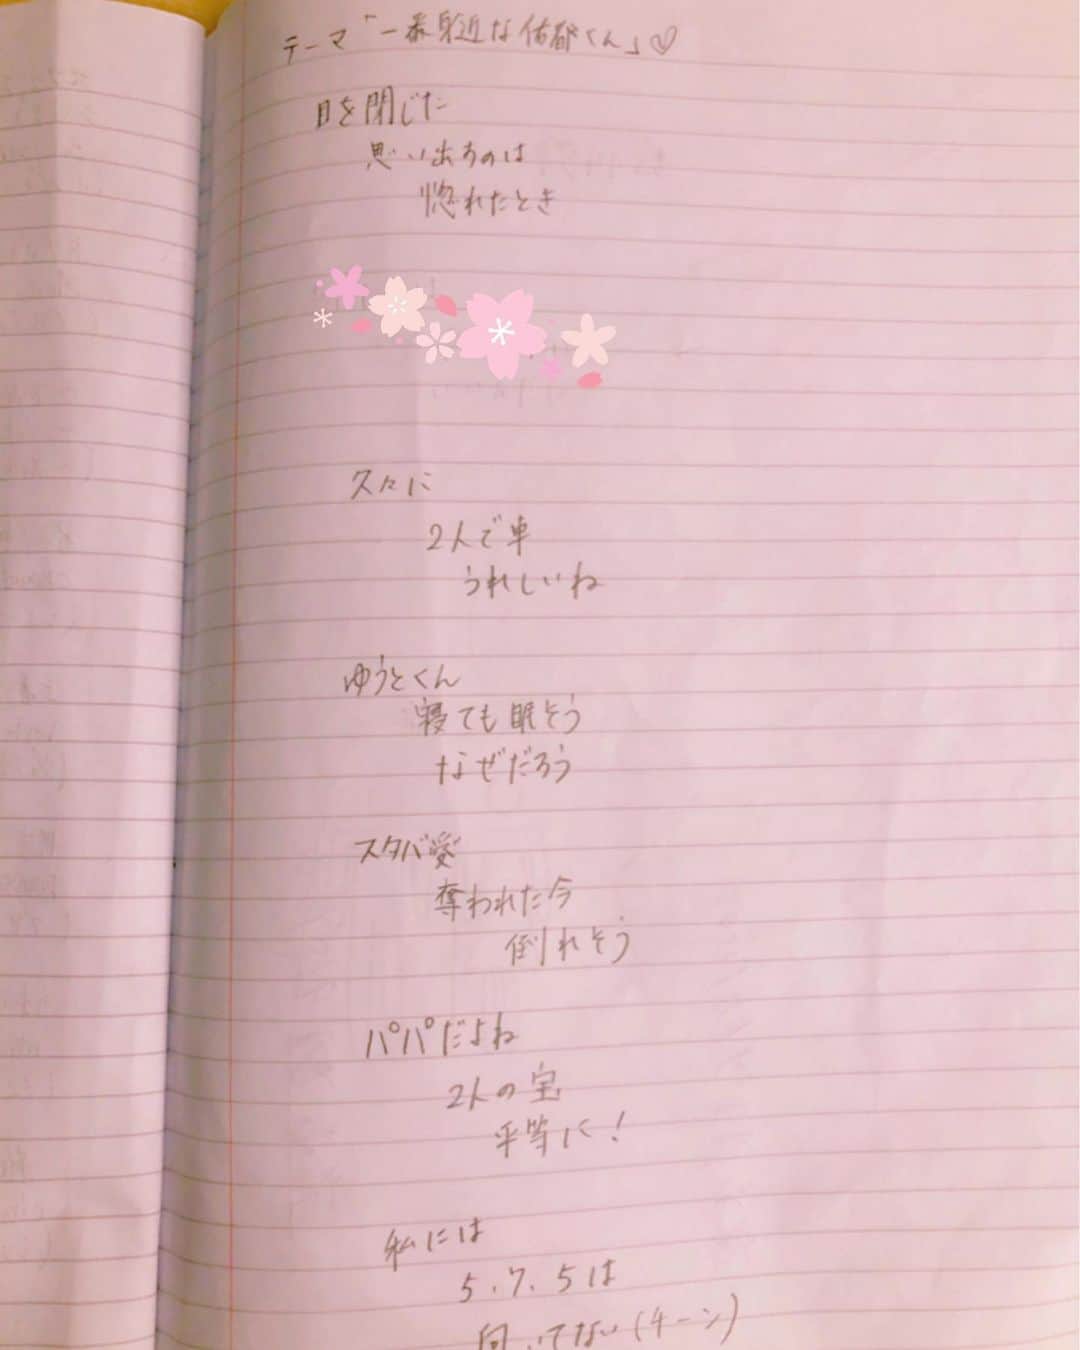 テーマ「一番身近な佑都くん」♡
目を閉じた
思い出すのは
惚れたとき
久々に
2人で車
うれしいね
ゆうとくん
寝ても眠そう
なぜだろう
スタバ愛
奪われた今
倒れそう
パパだよね
2人の宝
平等に!
私には
5.7.5は
向いてない(チーン)